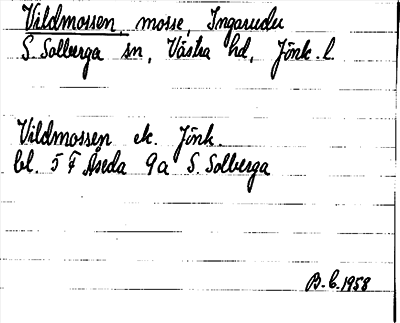 Vildmossen, mosse, Ingarudu
S. Solberga sn, Västra hd, Jönk. l.
Vildmossen ek. Jönk.
bl. 5 F Åseda 9a S. Solberga
B. C. 1958